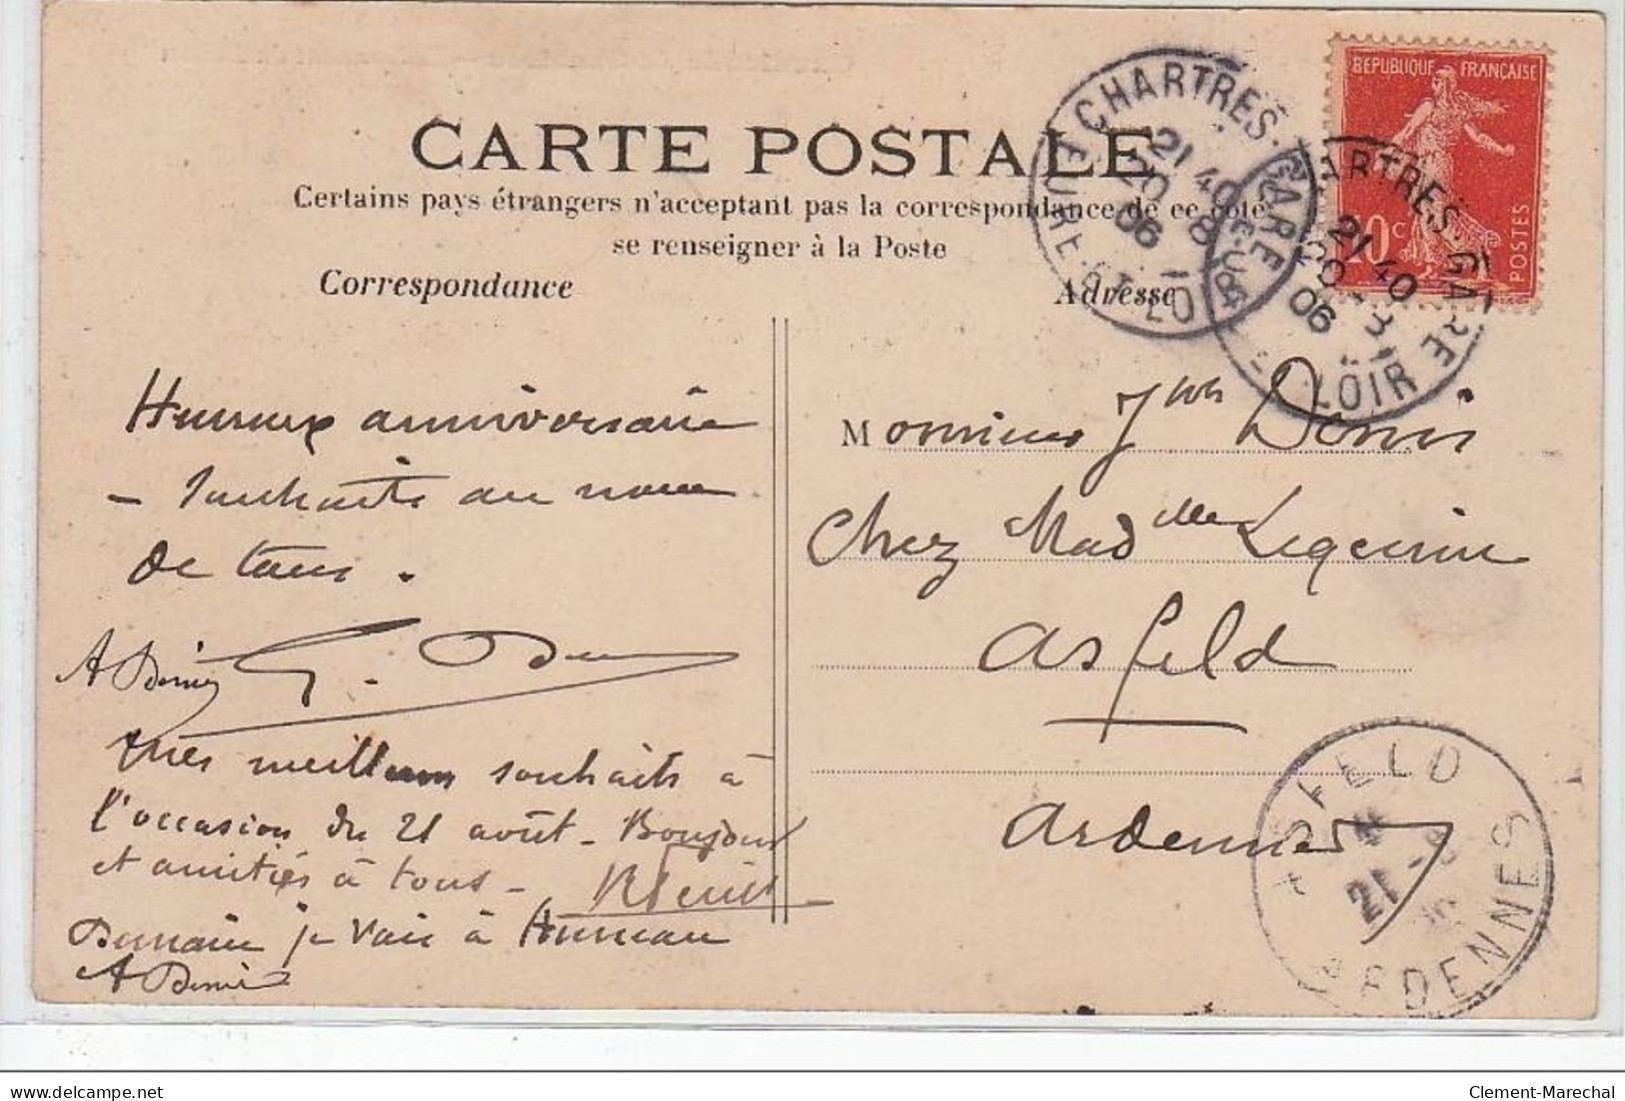 CARTE POSTALE
Certains pays étrangers n'acceptent pas la correspondance de ce côté
se renseigner à la Poste
Correspondance
Adresse
REPUBLIQUE FRANÇAISE
10c
POSTES
CHARTRES-GARE
21 40
20 8
06
EURE-ET-LOIR
CHARTRES-GARE
21 40
20 8
06
LOIR
Heureux anniversaire
- Souhaits au nom
de tous.
A Denis G. Denis
Mes meilleurs souhaits à
l'occasion du 21 août - Bonjour
et amitiés à tous -
Demain je vais à
A Denis
Monsieur Denis
Chez Madelle
Asfeld
Ardennes
ASFELD
21
ARDENNES
delcampe.net
Clement-Marechal